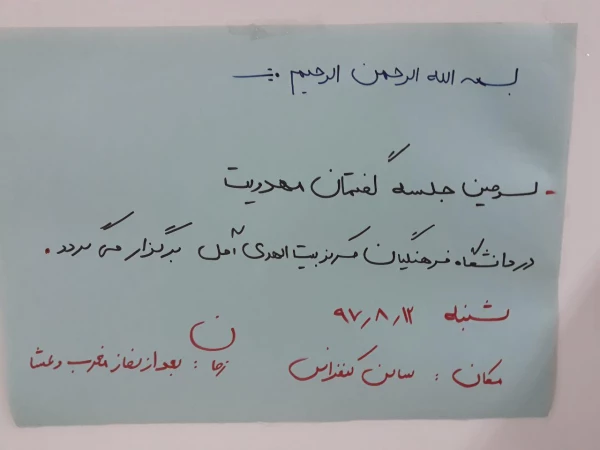 بسم الله الرحمن الرحیم
- سومین جلسه گفتمان مهدویت
در دانشگاه فرهنگیان مرکز بیت الهدی آمل برگزار می گردد.
شنبه ۹۷٫۸٫۱۲
مکان : سالن کنفرانس
زمان : بعد از نماز مغرب و عشا